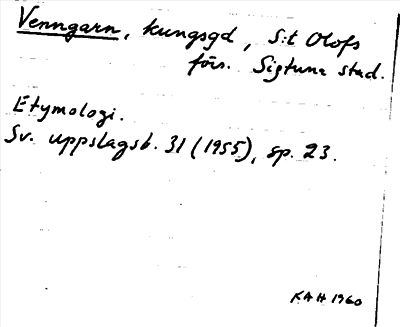 Venngarn, kungsgd, S:t Olofs
förs. Sigtuna stad.
Etymologi.
Sv. uppslagsb. 31 (1955), sp. 23.
KAH 1960